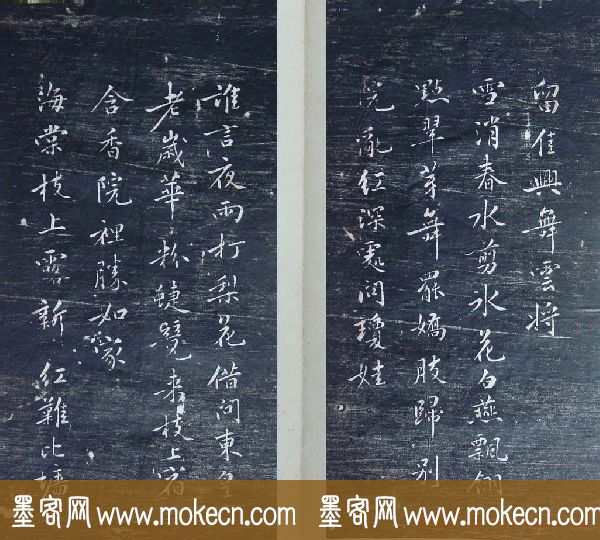 留佳興舞雲將
雪消春水剪水花白燕飄翎
點翠芽舞罷嬌肢歸別
院亂紅深處問瓊娃
誰言夜雨打梨花借問東皇
老歲華鬆鬢覽來枝上宿
含香院裡勝如家
海棠枝上露新紅難比墻
墨客网 www.mokecn.com
墨客网 www.mokecn.com